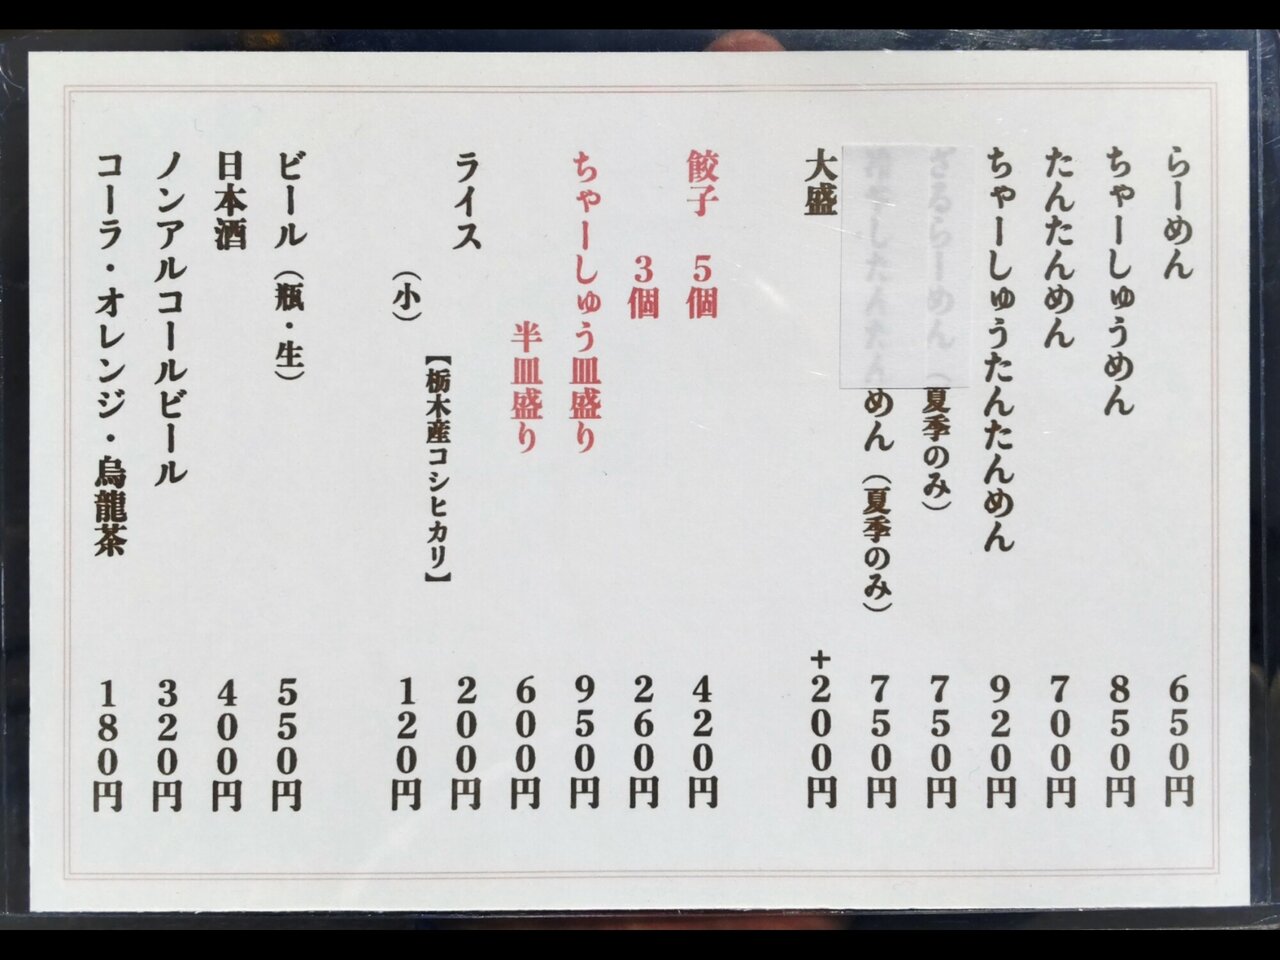 らーめん 650円
ちゃーしゅうめん 850円
たんたんめん 700円
ちゃーしゅうたんたんめん 920円
ざるらーめん（夏季のみ） 750円
冷やしたんたんめん（夏季のみ） 750円
大盛 +200円
餃子 5個 420円
3個 260円
ちゃーしゅう皿盛り 950円
半皿盛り 600円
ライス 200円
【栃木産コシヒカリ】
（小） 120円
ビール（瓶・生） 550円
日本酒 400円
ノンアルコールビール 320円
コーラ・オレンジ・烏龍茶 180円